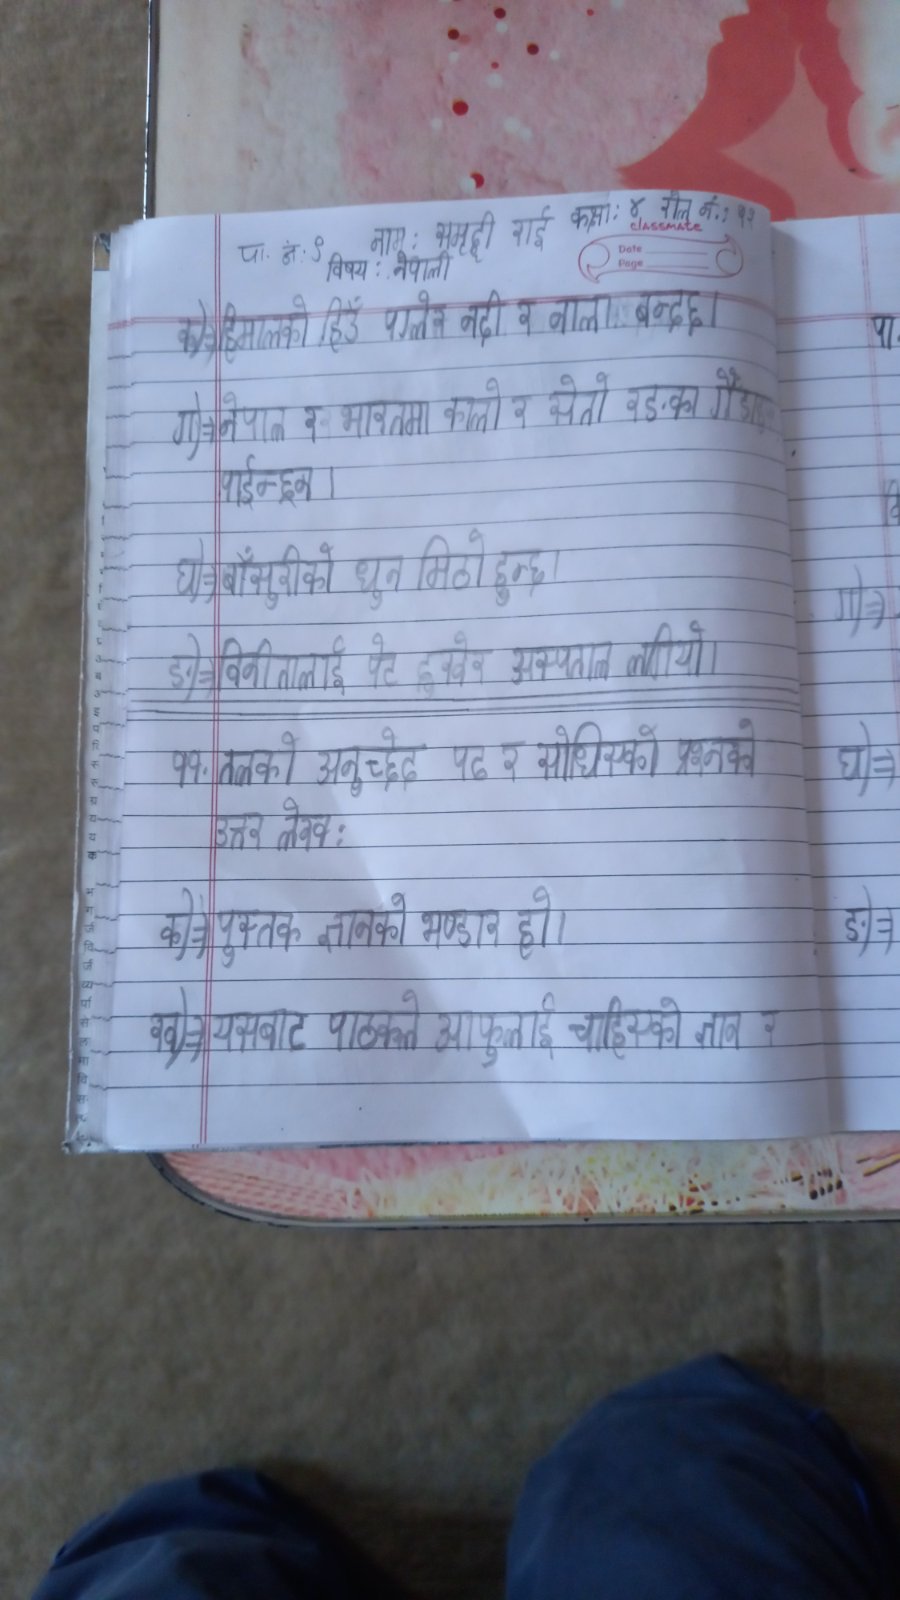 पा. नं: ९ नाम: समृद्दी राई कक्षा: ४ रोल नं.: १२
classmate
विषय: नेपाली
Date
Page
क)⇒हिमालको हिउँ पग्लेर नदी र नाला बन्दछ।
ग)⇒नेपाल र भारतमा कालो र सेतो रङका
पाईन्छन।
घ)⇒बाँसुरीको धुन मिठो हुन्छ।
ङ)⇒विनीतालाई पेट दुखेर अस्पताल लगीयो।
११. तलको अनुच्छेद पढ र सोधिएको प्रश्नको
उत्तर लेख:
क)⇒पुस्तक ज्ञानको भण्डार हो।
ख)⇒यसबाट पाठकले आफुलाई चाहिएको ज्ञान र
पा.
ग)⇒
घ)⇒
ङ)⇒